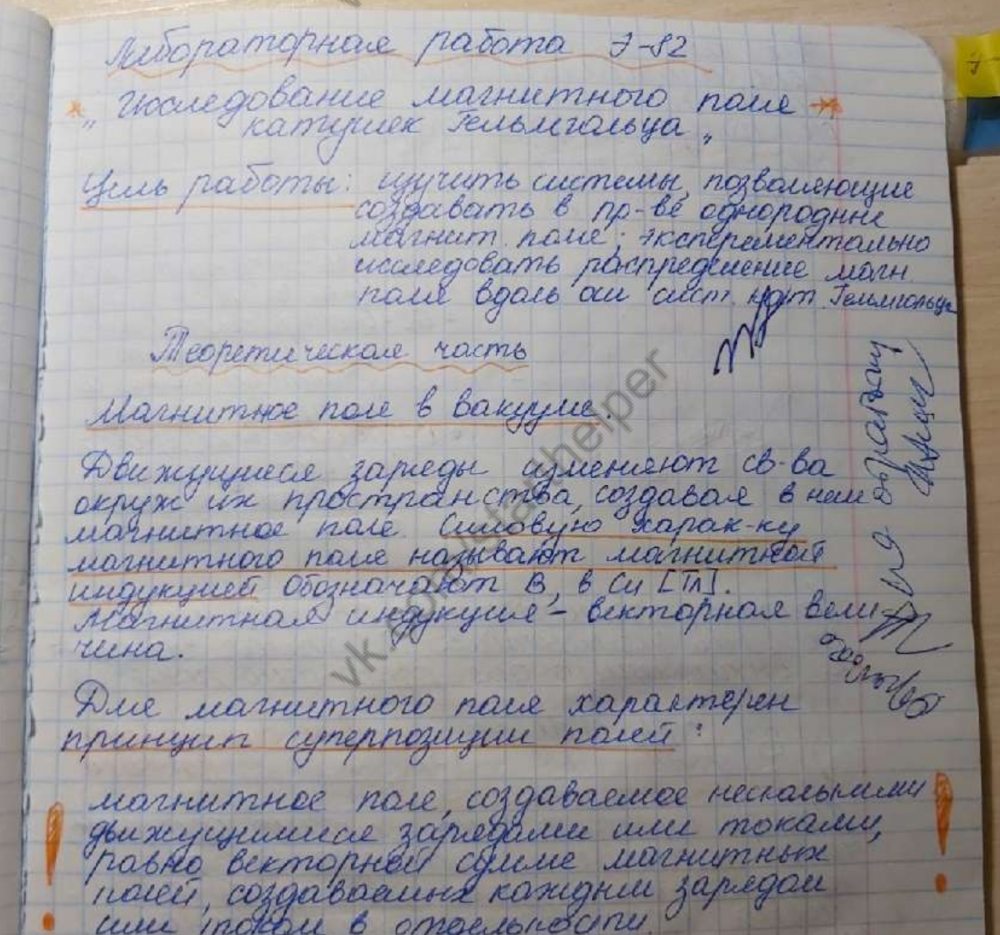 Лабораторная работа Э-82
"Исследование магнитного поля
катушек Гельмгольца"
Цель работы: изучить системы, позволяющие
создавать в пр-ве однородные
магнит. поле; экспериментально
исследовать распределение магн.
поля вдоль оси сист. кат. Гельмгольца
Теоретическая часть
Магнитное поле в вакууме.
Движущиеся заряды изменяют св-ва
окруж их пространства, создавая в нем
магнитное поле. Силовую харак-ку
магнитного поля называют магнитной
индукцией Обозначают B, в Си [Тл].
Магнитная индукция - векторная вели-
чина.
Для магнитного поля характерен
принцип суперпозиции полей:
магнитное поле, создаваемое несколькими
движущимися зарядами или токами,
равно векторной сумме магнитных
полей, создаваемых каждым зарядом
или током в отдельности.